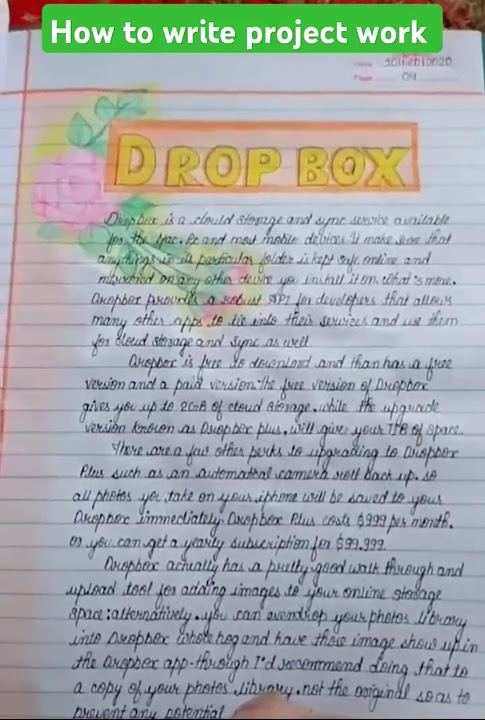 How to write project work
04
DROP BOX
Dropbox is a clould storage and sync service available
for the Mac. Pc and most mobile devices It make sure that
anythings in its particular folder is kept safe online and
mirrored on any other device you install it on. what's more.
Dropbox provides a robust API for developers that allows
many other apps to tie into their services and use them
for cloud storage and sync as well
Dropbox is free to download and than has a free
version and a paid version. The free version of Dropbox
gives you up to 2GB of cloud storage. while the upgrade
version known as Dropbox plus, will give your 1TB of space.
There are a few other perks to upgrading to Dropbox
Plus such as an automatical camera roll back up. so
all photos you take on your iphone will be saved to your
Dropbox immediately. Dropbox Plus costs $999 per month.
or you can get a yearly subscription for $99.999.
Dropbox actually has a pretty good walk through and
upload tool for adding images to your online storage
space; alternatively. you can even drop your photos library
into Dropbox whole hog and have those image show up in
the Dropbox app-through I'd recommend doing that to
a copy of your photos library. not the original so as to
prevent any potential